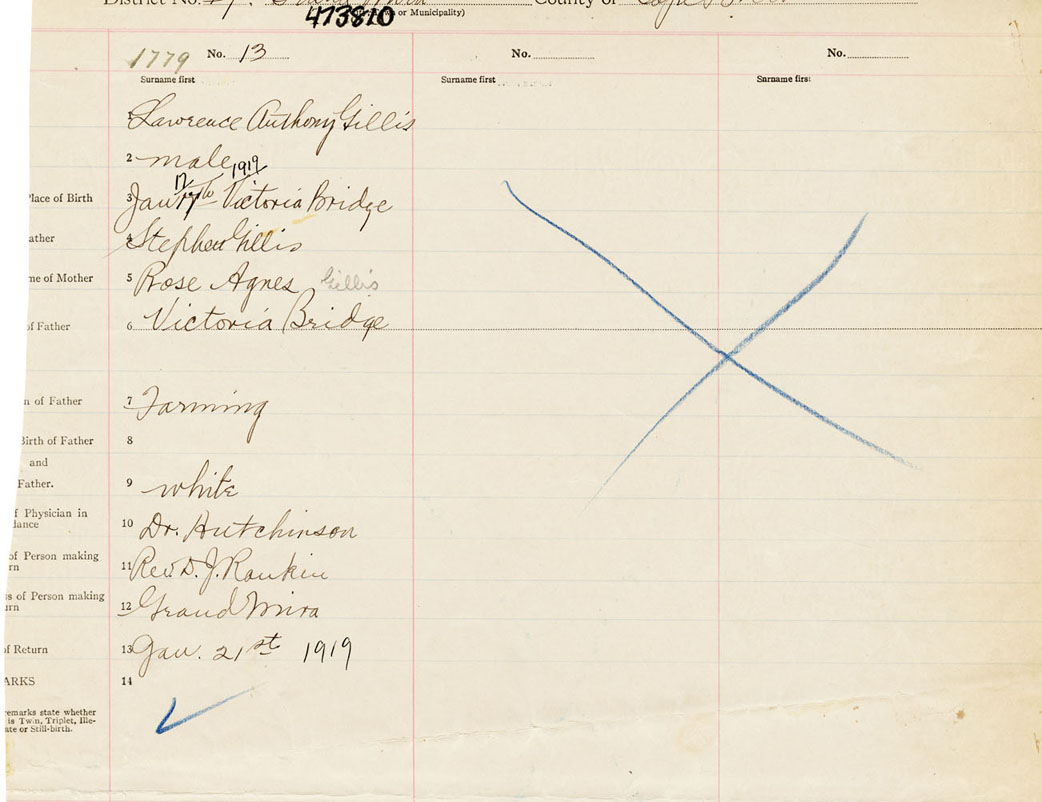 District No. 27. Grand Mira County of Cape Breton
(Town or Municipality)
473810
1779 No. 13 No. No.
Surname first Surname first Surname first
1 Lawrence Anthony Gillis
2 male
17 1919
Place of Birth 3 Jan 17th Victoria Bridge
ather 4 Stephen Gillis
me of Mother 5 Rose Agnes Gillis
of Father 6 Victoria Bridge
n of Father 7 Farming
Birth of Father 8
and
Father. 9 white
f Physician in
dance 10 Dr. Hutchinson
of Person making
rn 11 Rev. D. J. Rankin
ss of Person making
urn 12 Grand Mira
of Return 13 Jan. 21st 1919
ARKS 14
remarks state whether
is Twin, Triplet, Ille-
ate or Still-birth.